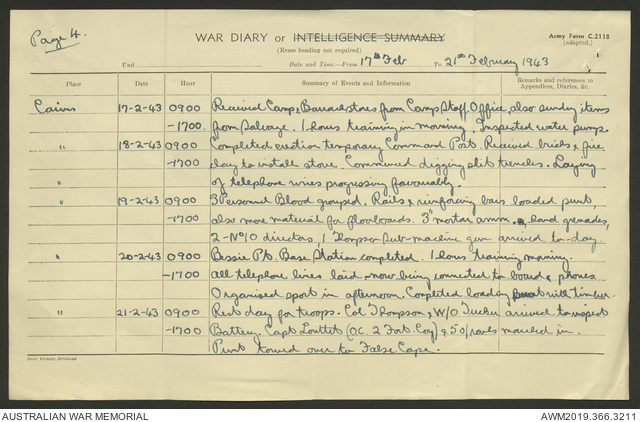 Page 4.
WAR DIARY or INTELLIGENCE SUMMARY
(Erase heading not required)
Army Form C.2118
(adapted.)
Unit Date and Time—From 17th Feb To 21st February 1943
Place Date Hour Summary of Events and Information Remarks and references to Appendices, Diaries, &c.
Cairns 17-2-43 0900 Received Camp & Barrack stores from Camp Staff Office, also sundry items
-1700. from Salvage. 1 hours training in morning. Inspected water pump.
" 18-2-43 0900 Completed erection temporary Command Post. Received bricks & fire
-1700 clay to install stove. Commenced digging slit trenches. Laying
" of telephone wires progressing favourably.
" 19-2-43 0900 3 Personnel Blood grouped. Rails & reinforcing bars loaded punt,
-1700 also more material for floorboards. 3" mortar amm. hand grenades,
2 - No 10 directors, 1 Thompson Sub-machine gun arrived to-day.
" 20-2-43 0900 Bessie Pt. Base Station completed. 1 hours training morning.
-1700 All telephone lines laid & now being connected to board & phones.
Organised sport in afternoon. Completed loading punt with timber.
" 21-2-43 0900 Rest day for troops. Col Thompson, & W/O Tucker arrived to inspect
-1700 Battery. Capt (OC. 2 Fort Coy) & 50 marched in.
Punt towed over to False Cape.
Govt. Printer, Brisbane
AUSTRALIAN WAR MEMORIAL
AWM2019.366.3211